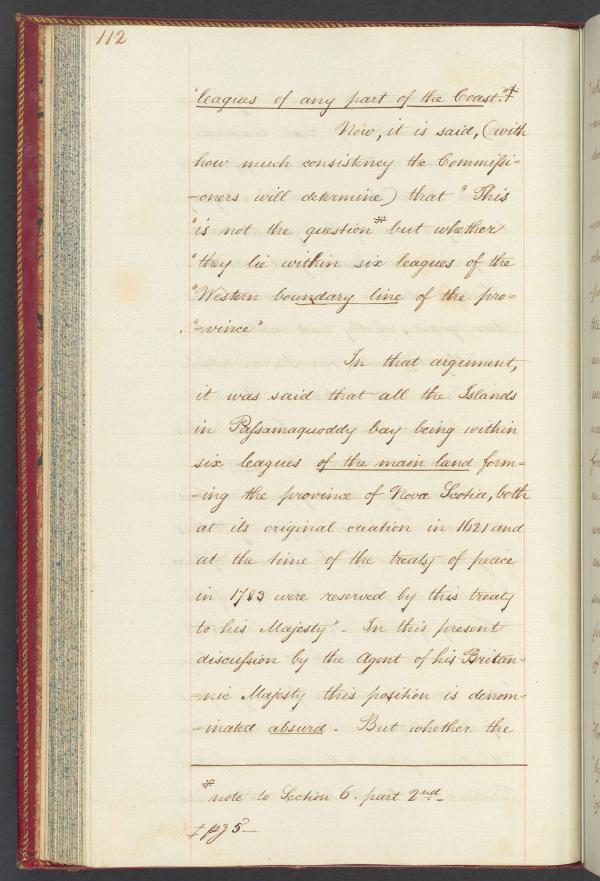 112
"leagues of any part of the Coast."‡
Now, it is said, (with
how much consistency the Commissi-
-oners will determine) that "This
"is not the question * but whether
"they lie within six leagues of the
"Western boundary line of the pro=
"=vince"
In that argument,
it was said that all the Islands
in Passamaquoddy bay being within
six leagues of the main land form=
-ing the province of Nova Scotia, both
at its original creation in 1621 and
at the time of the treaty of peace
in 1783 were reserved by this treaty
to his Majesty". In this present
discussion by the Agent of his Britan=
=nic Majesty this position is denom=
-inated absurd. But whether the
* note to Section 6. part 2nd_
‡ pg 5_